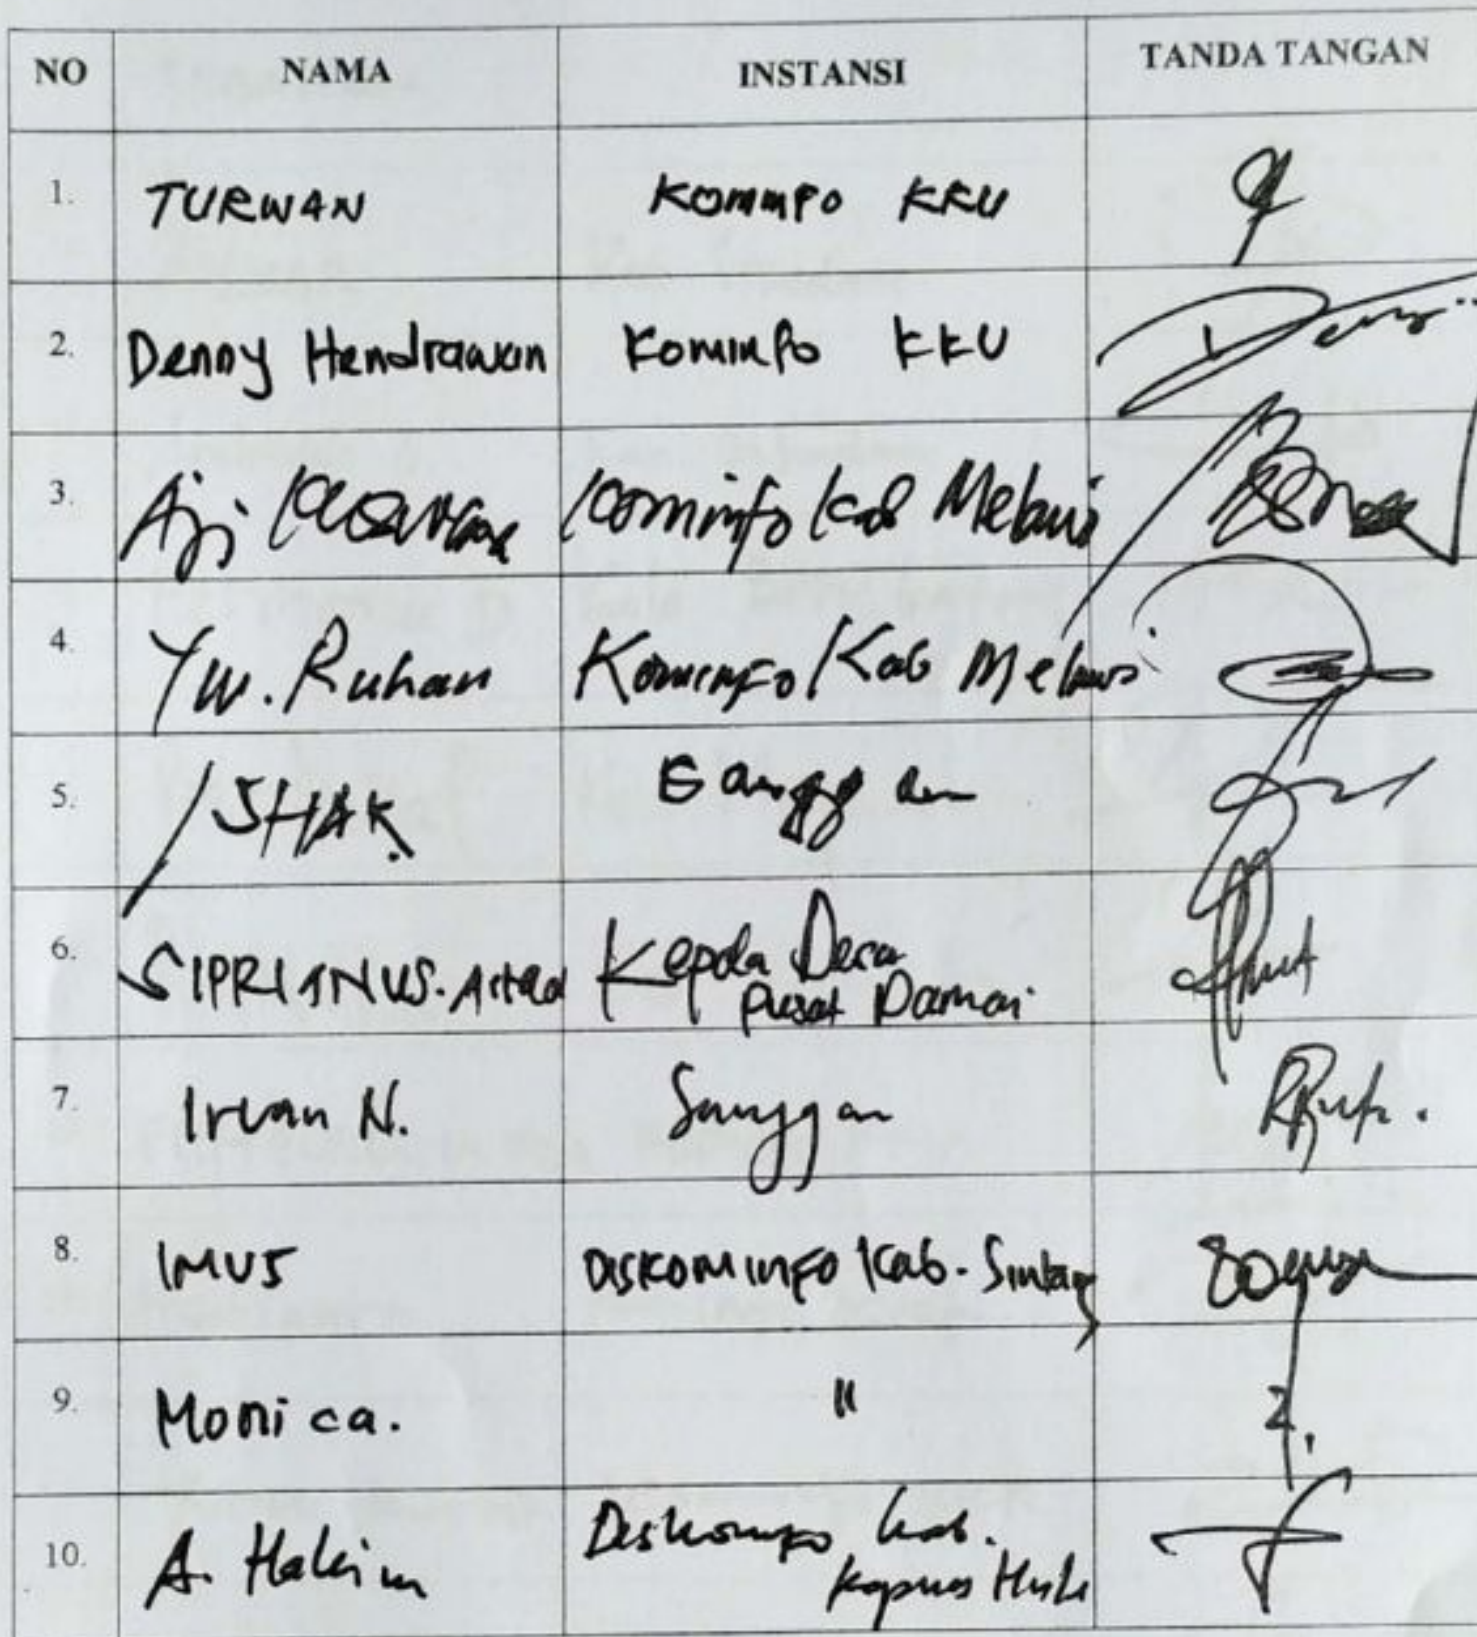 NO NAMA INSTANSI TANDA TANGAN
1. TURWAN Kominfo KKU
2. Denny Hendrawan Kominfo KKU
3. Aji Kominfo Kab Melawi
4. Yw. Ruhan Kominfo Kab Melawi
5. ISHAK Sanggau
6. SIPRIANUS. Kepala Desa
Pusat Damai
7. Irvan N. Sanggau
8. IMUS DISKOMINFO Kab. Sintang
9. Monica. "
10. A. Hakim Diskominfo Kab.
Kapuas Hulu